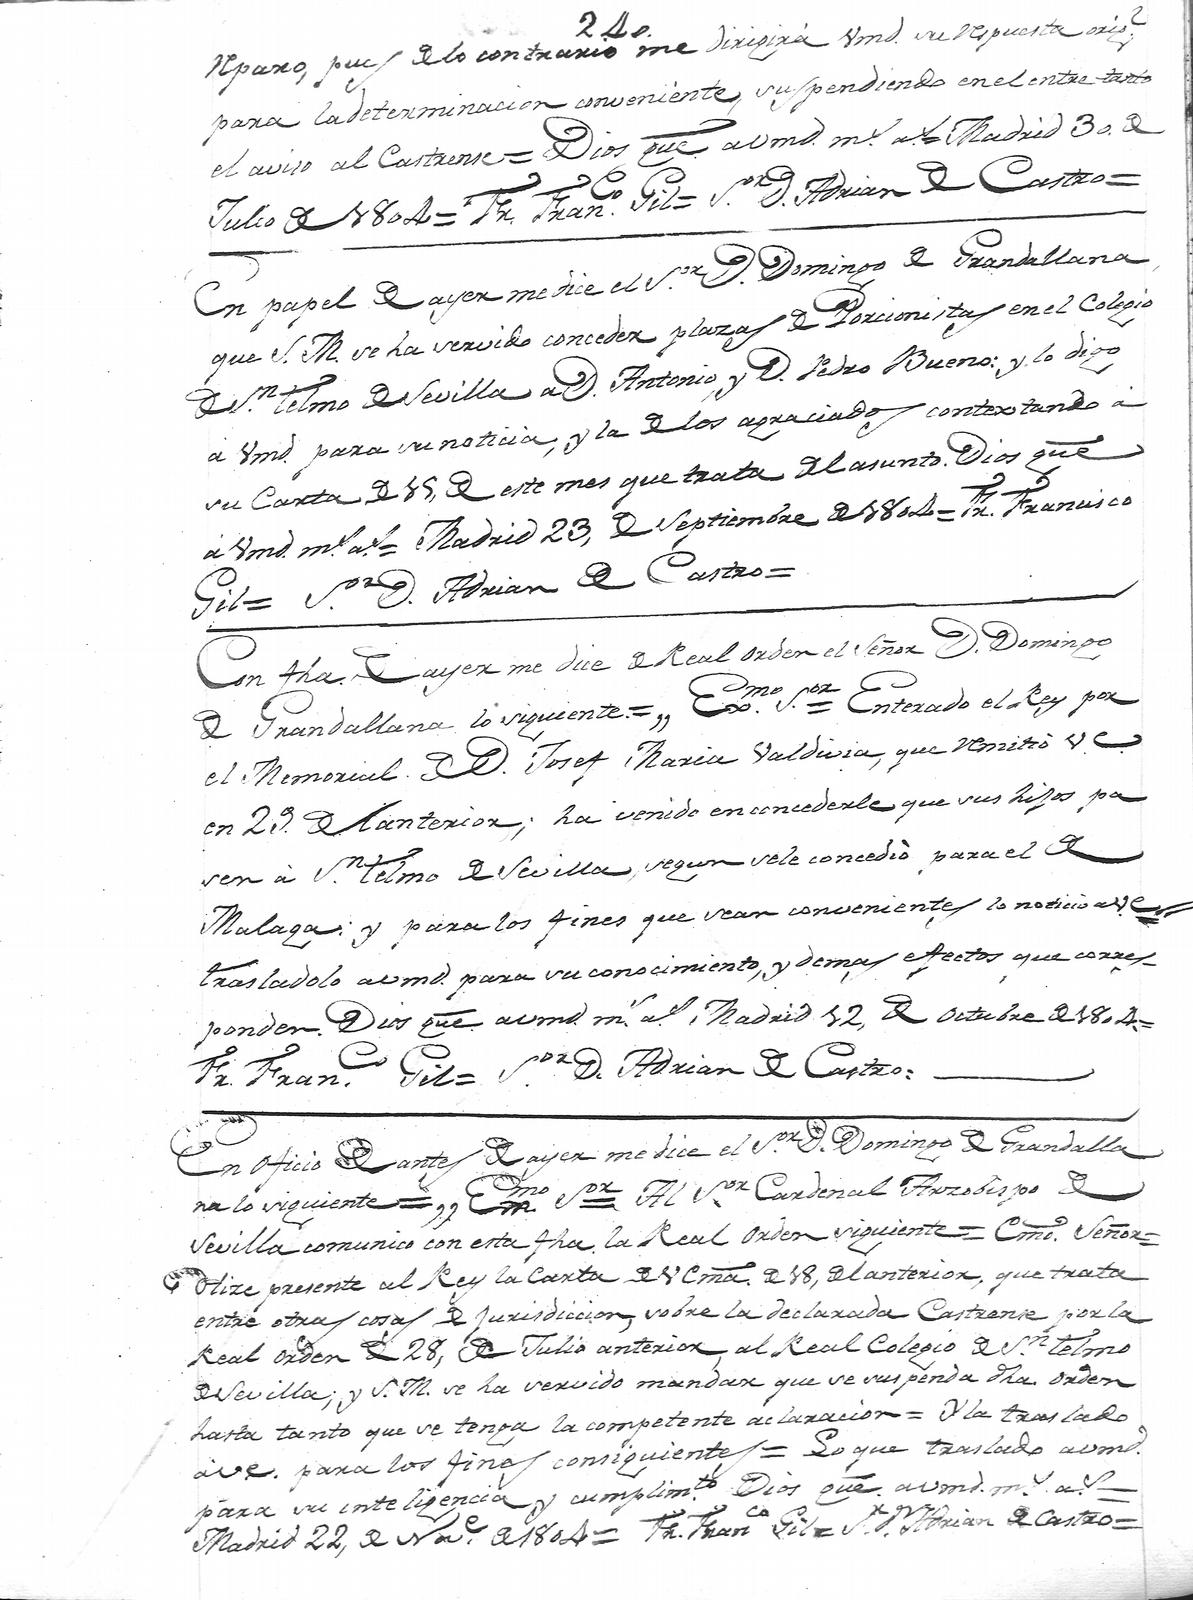 240.
Reparo, pues de lo contrario me dirigirá Vmd. su respuesta orig.l
para la determinacion conveniente, suspendiendo en el entre tanto
el aviso al Castrense = Dios gue. a vmd. m.s a.s = Madrid 30. de
Julio de 1804 = Fr. Fran.co Gil = S.or D. Adrian de Castro =
En papel de ayer me dice el S.or D. Domingo de Grandallana,
que S. M. se ha servido conceder plazas de Porcionistas en el Colegio
de S.n Telmo de Sevilla a D. Antonio, y D. Pedro Bueno: y lo digo
á Vmd. para su noticia, y la de los agraciados contextando á
su Carta de 15, de este mes que trata del asunto. Dios gue
á Vmd. m.s a.s = Madrid 23, de Septiembre de 1804 = Fr. Francisco
Gil = S.or D. Adrian de Castro =
Con fha. de ayer me dice de Real orden el Señor D. Domingo
de Grandallana lo siguiente. = „ Exmo. S.or = Enterado el Rey por
el Memorial de D. Josef Maria Valdivia, que remitió V e
en 29. del anterior; ha venido en concederle que sus hijos pa
sen á S.n Telmo de Sevilla, segun se le concedió para el de
Malaga: y para los fines que sean convenientes lo noticio a V e =
trasladolo a vmd. para su conocimiento, y demas efectos que corres-
ponden. Dios gue. a vmd. m.s a.s Madrid 12, de Octubre de 1804. =
Fr. Fran.co Gil = S.or D. Adrian de Castro =
En oficio de antes de ayer me dice el S.or D. Domingo de Grandalla
na lo siguiente = „ Exmo. S.or = Al S.or Cardenal Arzobispo de
Sevilla comunico con esta fha. la Real Orden siguiente = Emo. Señor =
Hize presente al Rey la Carta de V Ema. de 18, del anterior, que trata
entre otras cosas de jurisdiccion, sobre la declarada Castrense por la
Real Orden de 28, de Julio anterior, al Real Colegio de S.n Telmo
de Sevilla; y S. M. se ha servido mandar que se suspenda dha. orden
hasta tanto que se tenga la competente aclaracion = Y la traslado
á v e. para los fines consiguientes = Lo que traslado a vmd.
para su inteligencia, y cumplim.to Dios gue. a vmd. m.s a.s =
Madrid 22, de Nov.e de 1804 = Fr. Fran.co Gil = S.r D. Adrian de Castro =